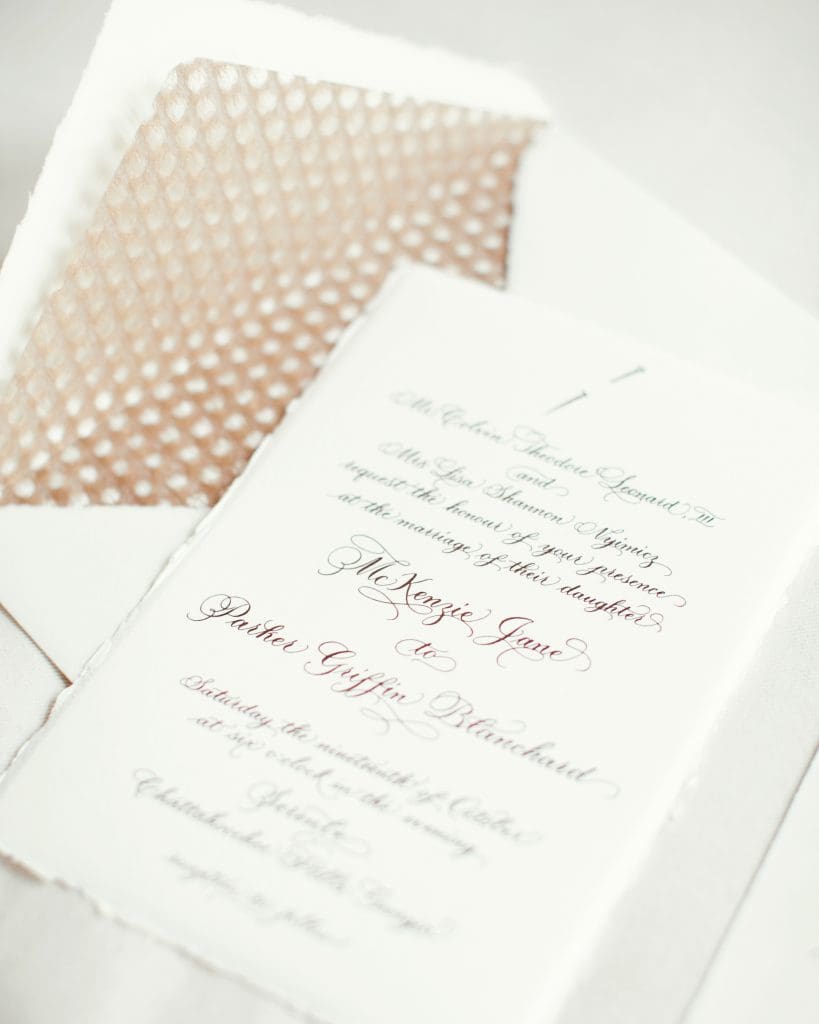 Mr. Colvin Theodore Leonard, III
and
Mrs Lisa Shannon Nyimicz
request the honour of your presence
at the marriage of their daughter
McKenzie Jane
to
Parker Griffin Blanchard
Saturday the nineteenth of October
at six o'clock in the evening
Serenbe
Chattahoochee Hills, Georgia
reception to follow